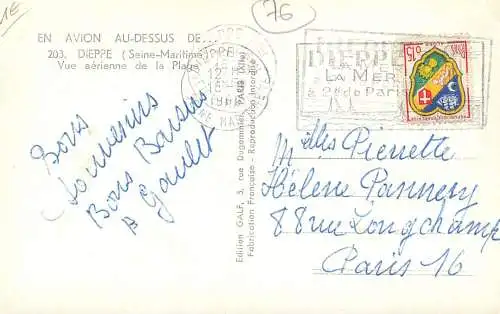 1€
76
EN AVION AU-DESSUS DE...
203. DIEPPE (Seine-Maritime)
Vue aérienne de la Plage
DIEPPE
LA MER
à 2h de Paris
Bons
Souvenirs
Bons Baisers
Edition GALF, 5, rue Dugommier, PARIS (XIIe)
Fabrication Française - Reproduction Interdite
Melles Pierrette
Hélène Pannery
88 rue Longchamp
Paris 16